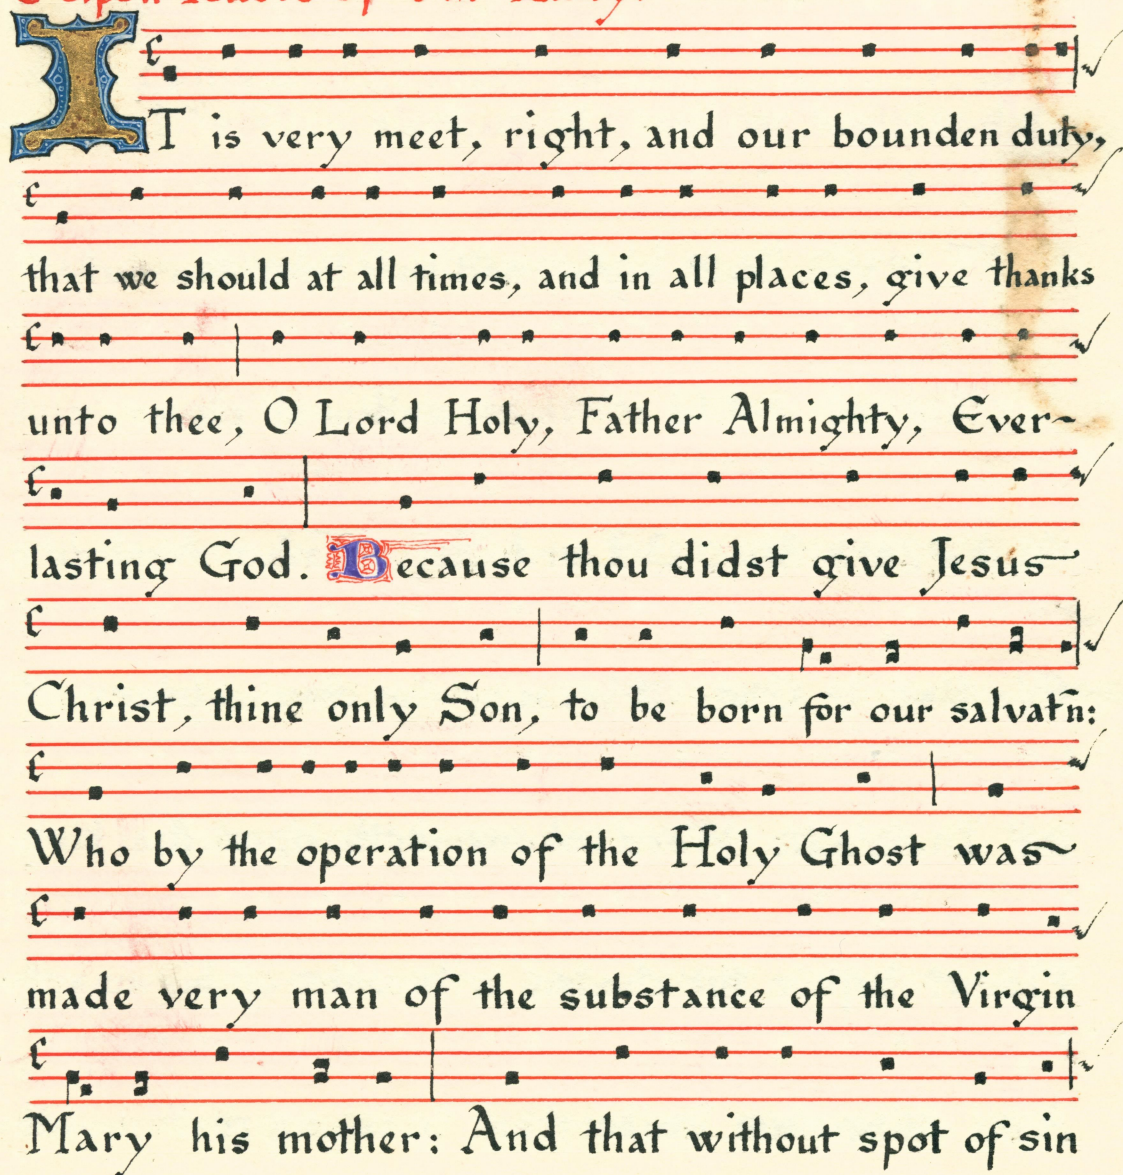 IT is very meet, right, and our bounden duty,
that we should at all times, and in all places, give thanks
unto thee, O Lord Holy, Father Almighty, Ever~
lasting God. Because thou didst give Jesus
Christ, thine only Son, to be born for our salvat̃n:
Who by the operation of the Holy Ghost was~
made very man of the substance of the Virgin
Mary his mother: And that without spot of sin